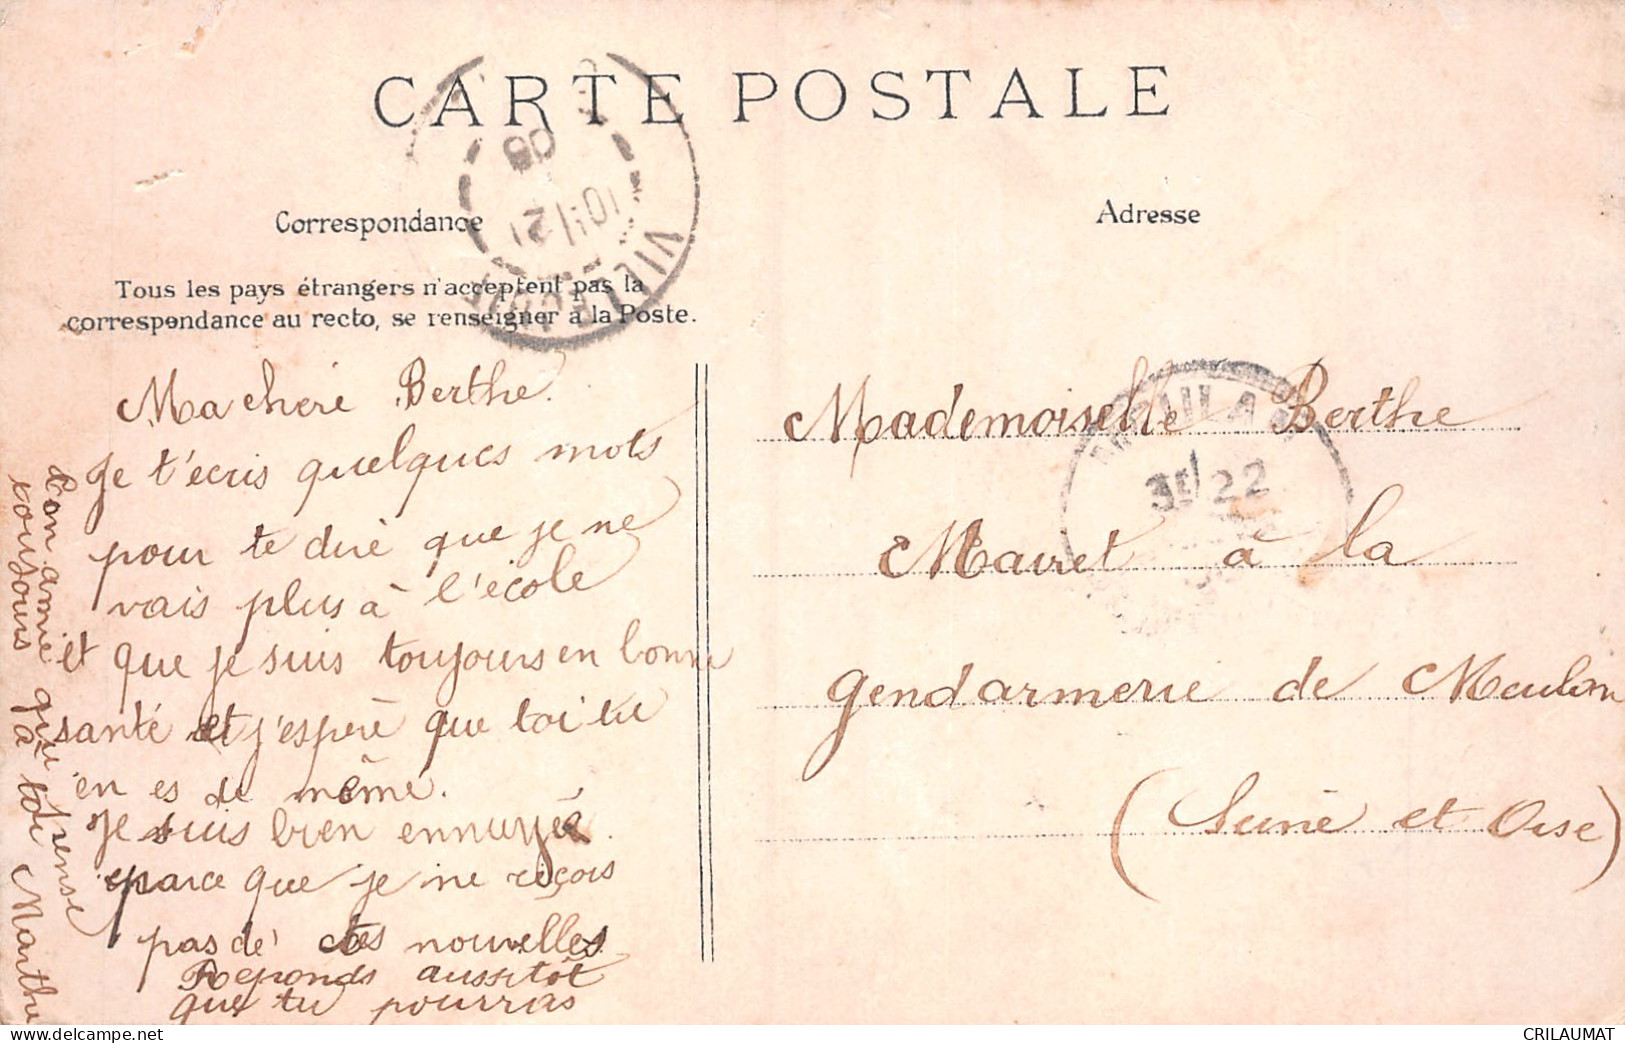 CARTE POSTALE
Correspondance
Adresse
Tous les pays étrangers n'acceptent pas la
correspondance au recto, se renseigner à la Poste.
Ma cheré Berthe.
Je t'écris quelques mots
pour te diré que je ne
vais plus à l'école
et que je suis toujours en bonne
santé et j'esperè que toi tu
en es de même.
Je suis bien ennuyée
parce que je ne reçois
pas dé tes nouvelles
Reponds aussitôt
que tu pourras
ton amie qui pense
toujours à toi Marthe
Mademoiselle Berthe
Mairet à la
gendarmerie de Meulan
(Seine et Oise)
22
CRILAUMAT